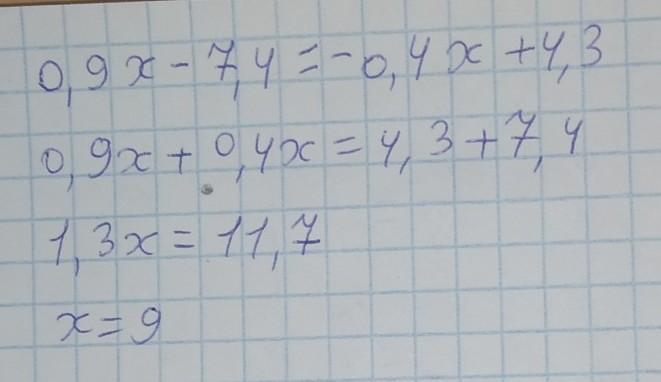 0,9x - 7,4 = -0,4x + 4,3
0,9x + 0,4x = 4,3 + 7,4
1,3x = 11,7
x = 9